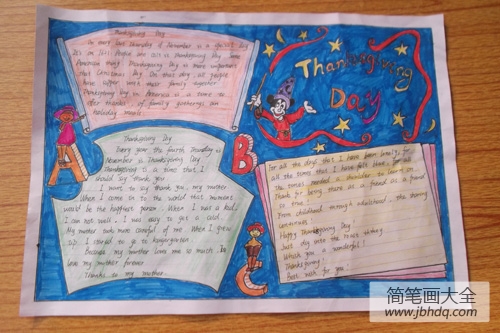 Thanksgiving Day
Thanksgiving Day
In every last Thursday of November is a day
It's on this
American Thanksgiving Day is more important
than Christmas Day. On that day, all people
have supper with their family together.
Thanksgiving Day in America is a time to
offer thanks, of family gatherings and
holiday meals.
Thanksgiving Day
Every year the fourth Thursday in
November is Thanksgiving Day.
Thanksgiving is a time that I
should say thank you.
I want to say thank you, my mother.
When I come in to the world that moment
would be the happiest person. When I was a kid,
I can not walk. I was easy to get a cold.
My mother took more careful of me. When I grew
up, I started to go to kindergarten.
Because my mother love me so much. I'll
love my mother forever.
Thanks to my mother.
A
B
C
For all the days that I have been lonely, for
all the times that I have felt
The times needed a shoulder to learn on
Thank for being there as a friend as a friend
so true.
From childhood through adulthood, the sharing
continues!
Happy Thanksgiving Day
Just dry into the river
Whish you a wonderful
Thanksgiving!
Best wish for you!
简笔画大全
www.jbhdq.com